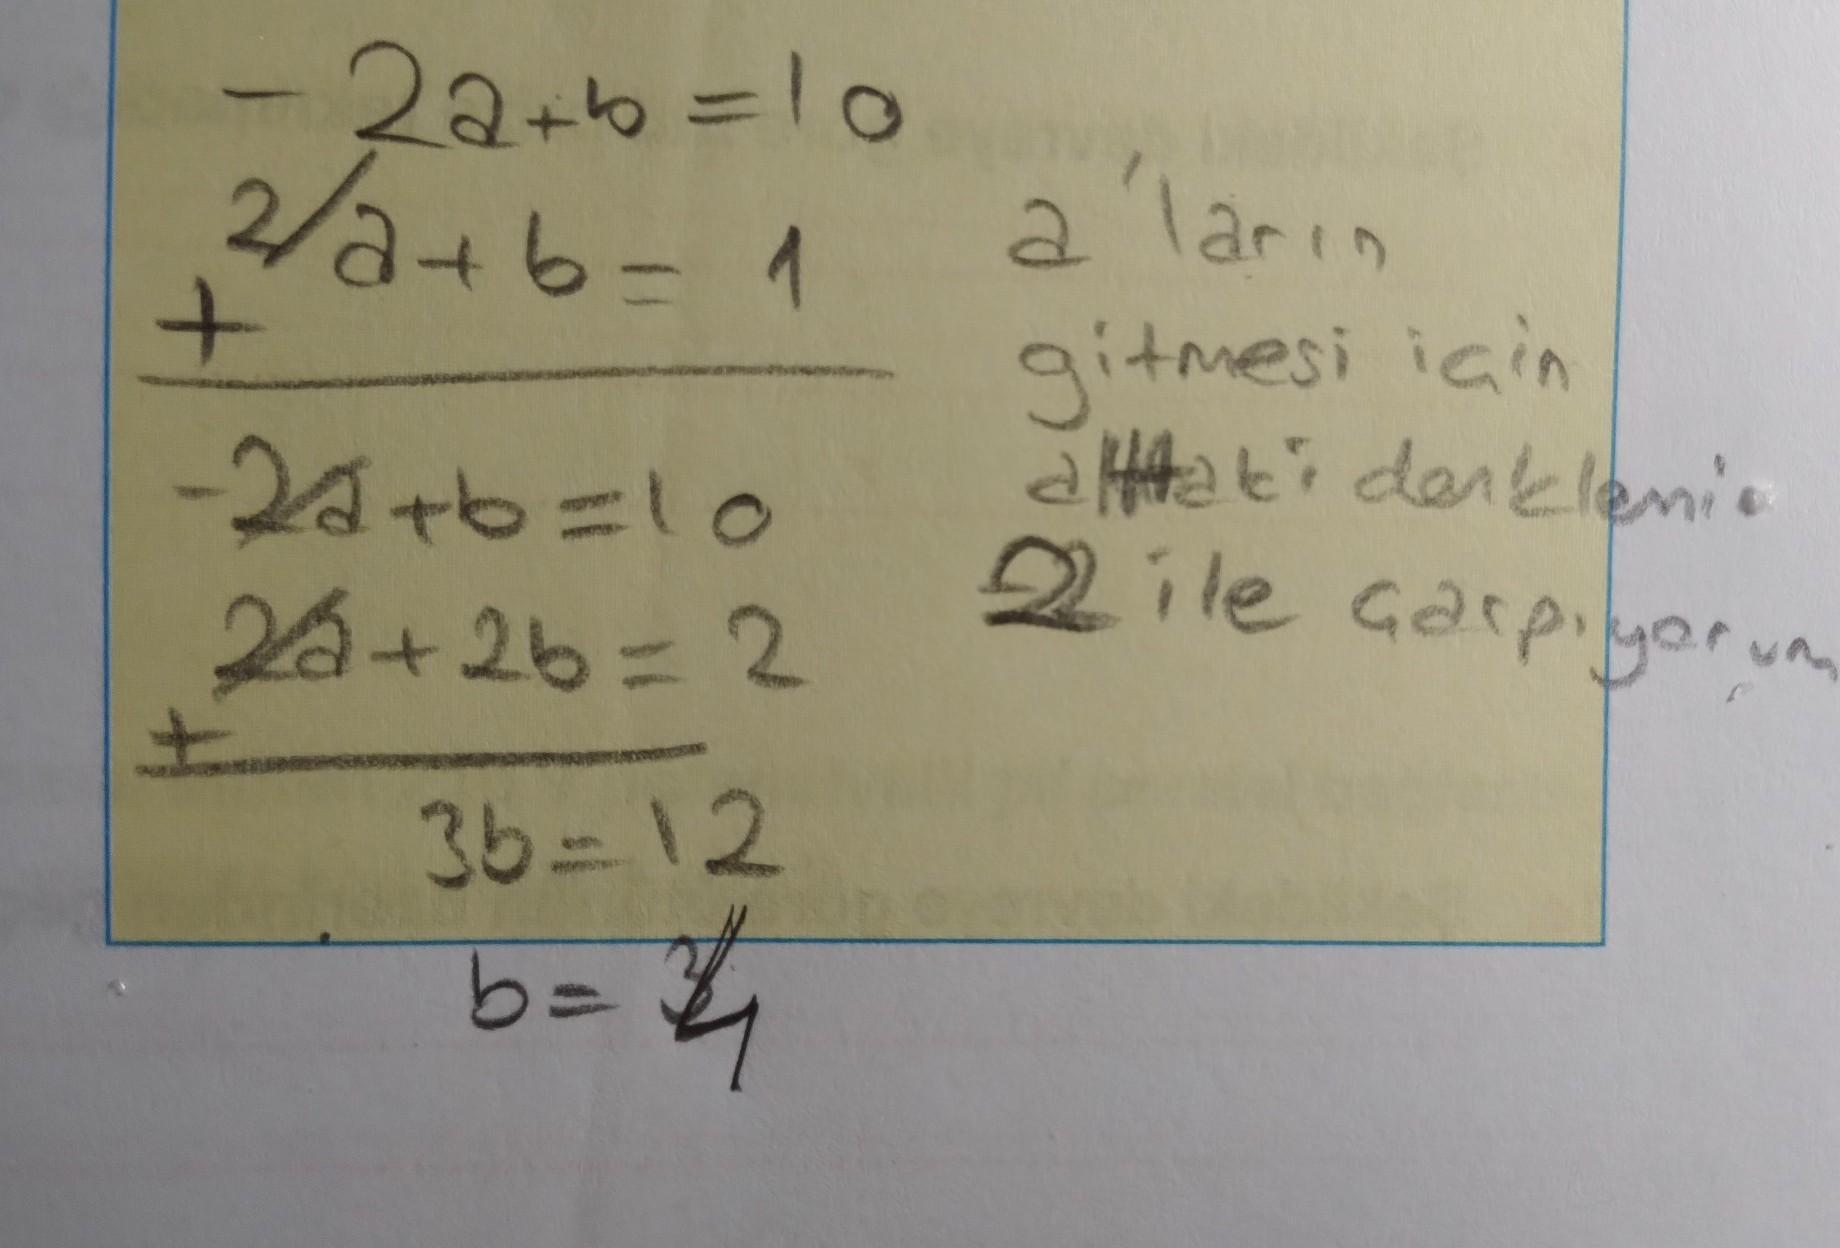 -2a+b=10
2/a+b=1
+
a'ların
gitmesi için
alttaki denklemi
2 ile çarpıyorum
-2a+b=10
2a+2b=2
+
3b=12
b=4